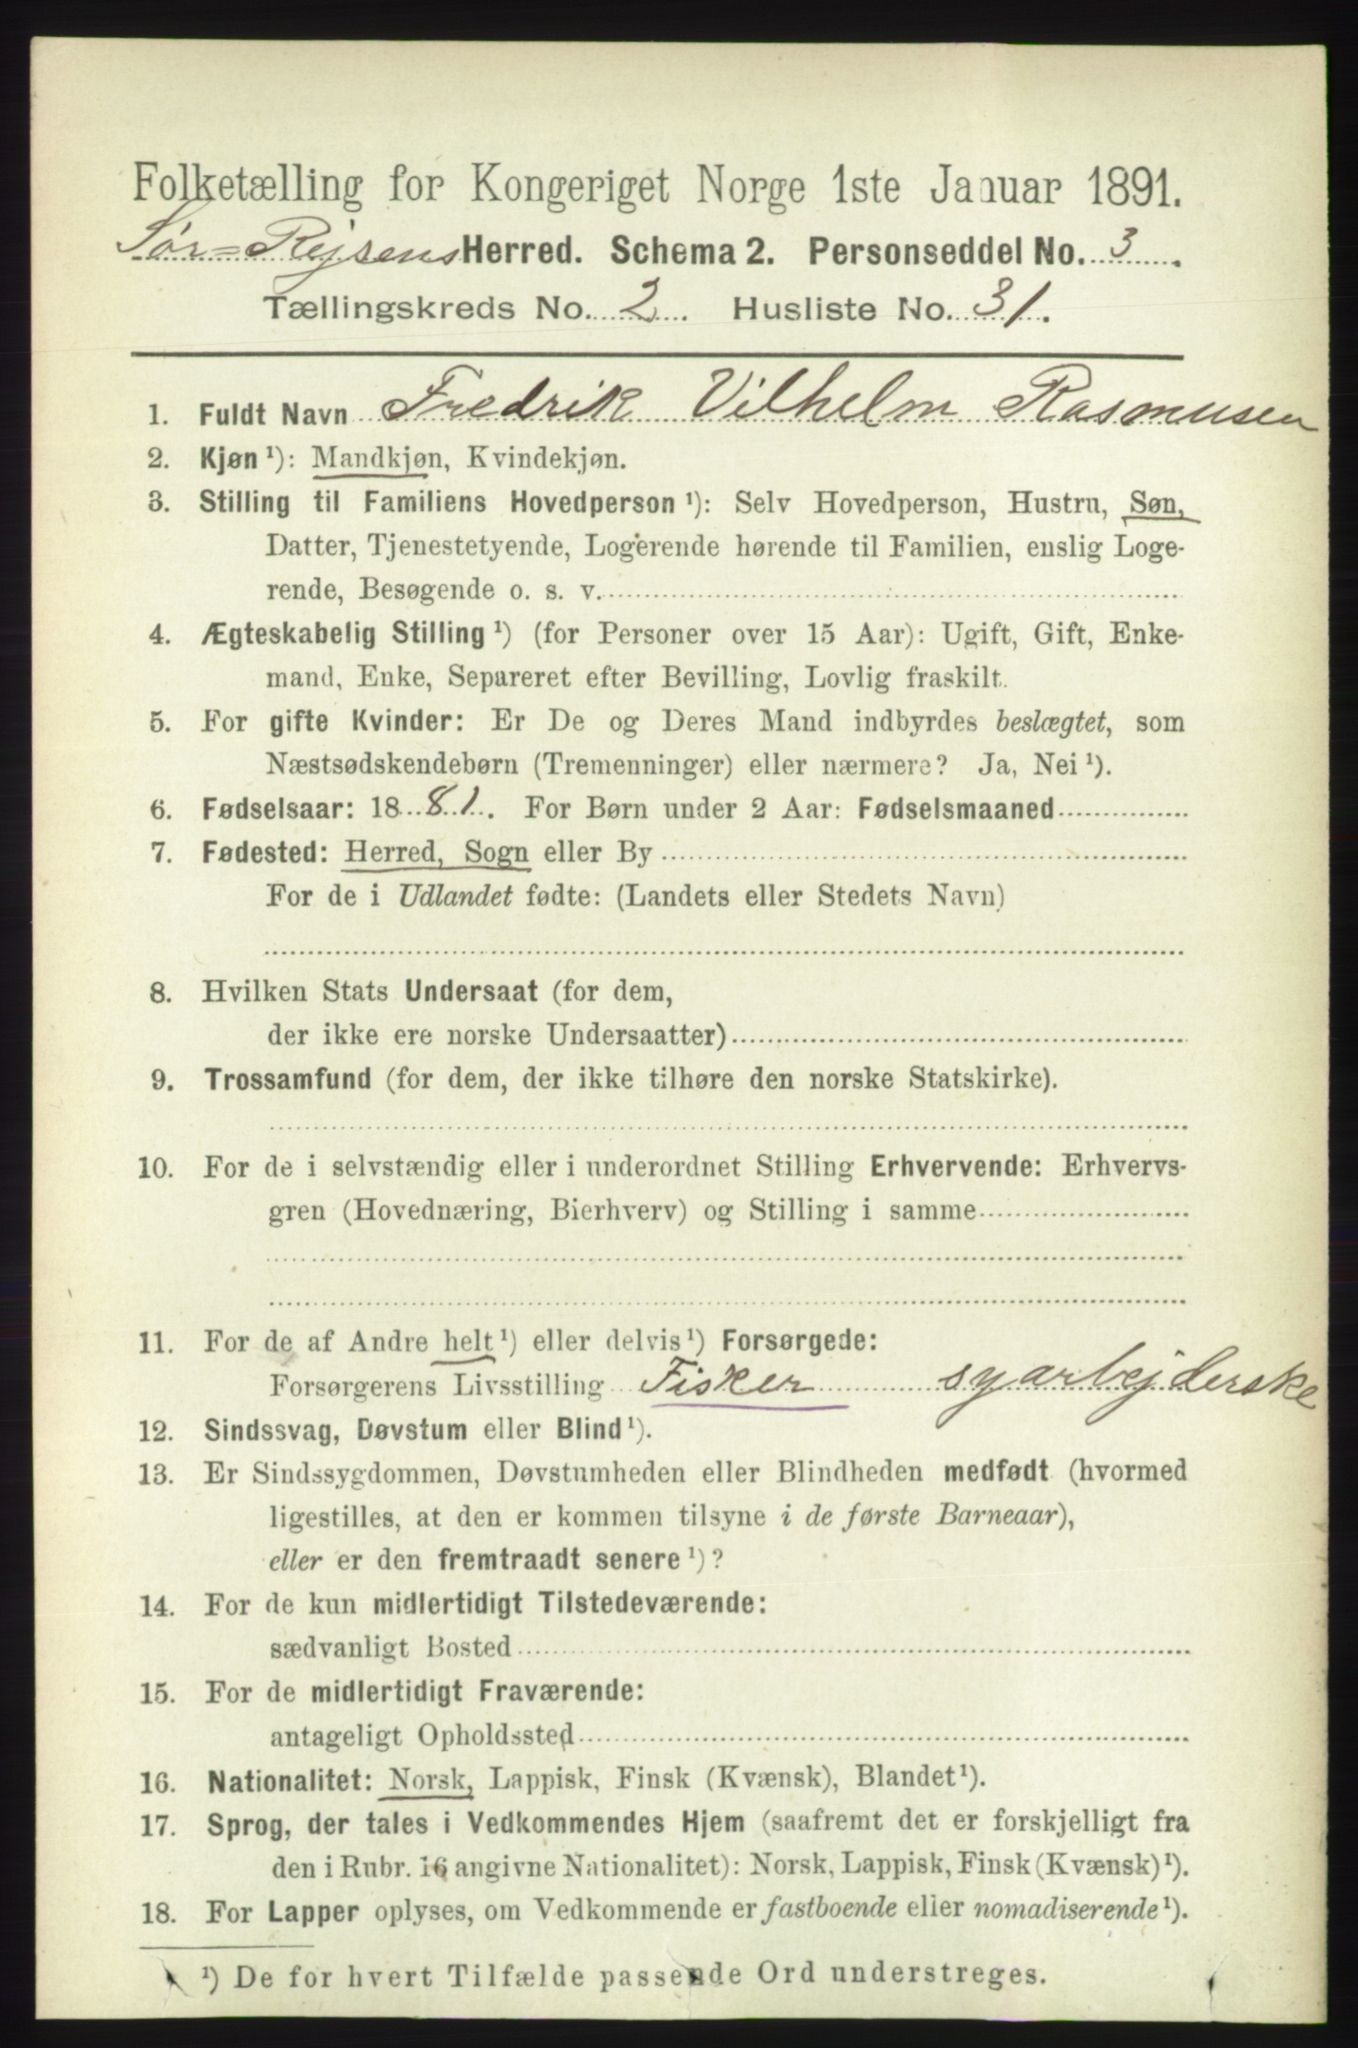 Folketælling for Kongeriget Norge 1ste Januar 1891.
Sør=Rejsens Herred. Schema 2. Personseddel No. 3.
Tællingskreds No. 2. Husliste No. 31.
1. Fuldt Navn Fredrik Vilhelm Rasmusen
2. Kjøn ¹): Mandkjøn, Kvindekjøn.
3. Stilling til Familiens Hovedperson ¹): Selv Hovedperson, Hustru, Søn,
Datter, Tjenestetyende, Logerende hørende til Familien, enslig Loge-
rende, Besøgende o. s. v.
4. Ægteskabelig Stilling ¹) (for Personer over 15 Aar): Ugift, Gift, Enke-
mand, Enke, Separeret efter Bevilling, Lovlig fraskilt.
5. For gifte Kvinder: Er De og Deres Mand indbyrdes beslægtet, som
Næstsødskendebørn (Tremenninger) eller nærmere? Ja, Nei ¹).
6. Fødselsaar: 1881. For Børn under 2 Aar: Fødselsmaaned
7. Fødested: Herred, Sogn eller By
For de i Udlandet fødte: (Landets eller Stedets Navn)
8. Hvilken Stats Undersaat (for dem,
der ikke ere norske Undersaatter)
9. Trossamfund (for dem, der ikke tilhøre den norske Statskirke).
10. For de i selvstændig eller i underordnet Stilling Erhvervende: Erhvervs-
gren (Hovednæring, Bierhverv) og Stilling i samme
11. For de af Andre helt ¹) eller delvis ¹) Forsørgede:
Forsørgerens Livsstilling Fisker syarbejderske
12. Sindssvag, Døvstum eller Blind ¹).
13. Er Sindssygdommen, Døvstumheden eller Blindheden medfødt (hvormed
ligestilles, at den er kommen tilsyne i de første Barneaar),
eller er den fremtraadt senere ¹)?
14. For de kun midlertidigt Tilstedeværende:
sædvanligt Bosted
15. For de midlertidigt Fraværende:
antageligt Opholdssted
16. Nationalitet: Norsk, Lappisk, Finsk (Kvænsk), Blandet ¹).
17. Sprog, der tales i Vedkommendes Hjem (saafremt det er forskjelligt fra
den i Rubr. 16 angivne Nationalitet): Norsk, Lappisk, Finsk (Kvænsk) ¹).
18. For Lapper oplyses, om Vedkommende er fastboende eller nomadiserende ¹).
¹) De for hvert Tilfælde passende Ord understreges.